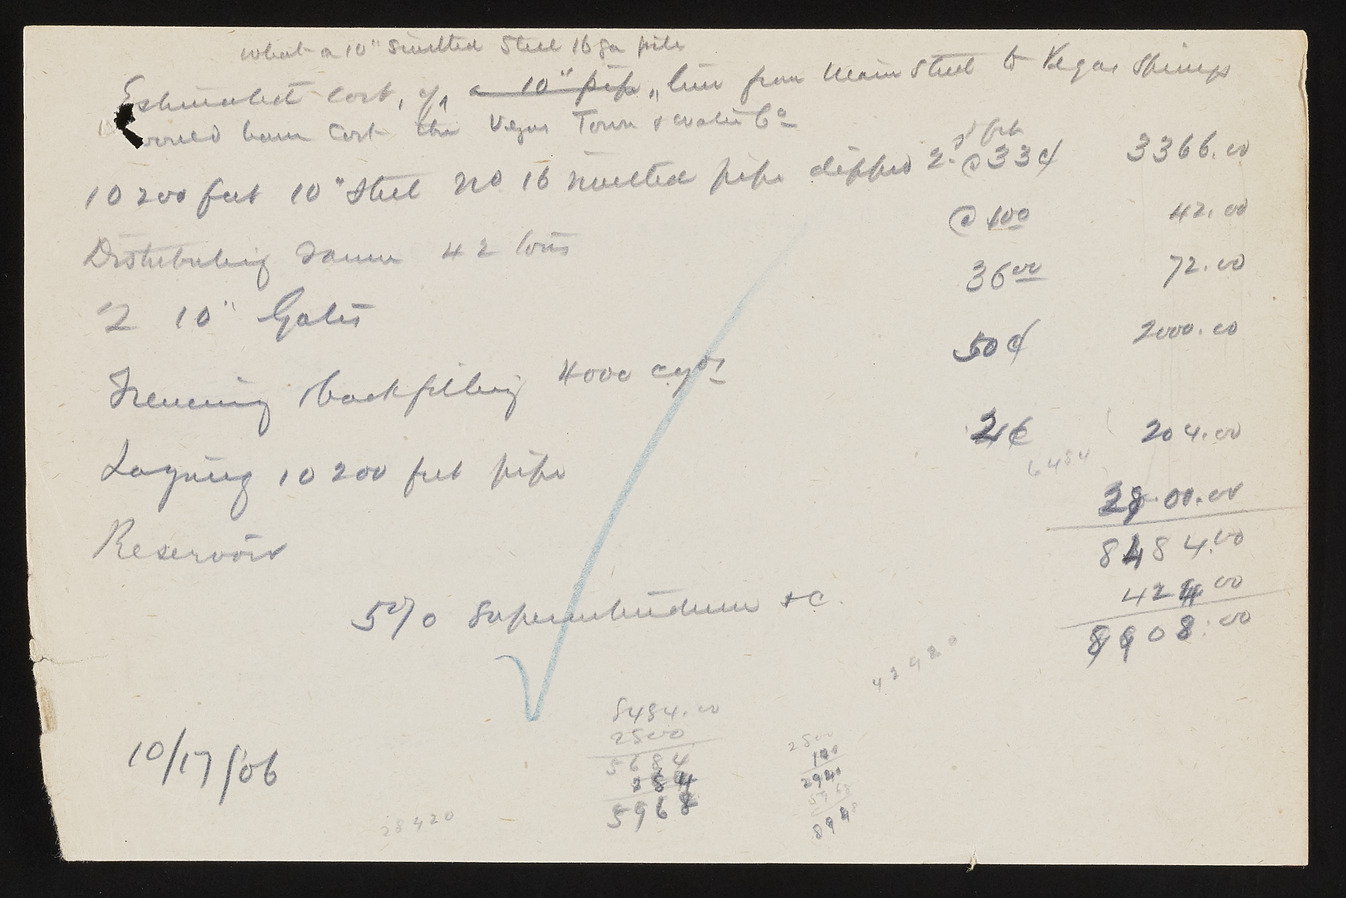 what a 10" rivetted Steel 16 ga pipe
Estimated cost, of a 10" pipe line from Main Street to Vegas Springs
would have Cost the Vegas Town & water Co
10 200 feet 10" Steel No 16 rivetted pipe dipped 2. @ 33¢ 3366.00
Distributing same 42 tons @ 1.00 42.00
2 10" Gates 36.00 72.00
Trenching & backfilling 4000 c yds 50¢ 2000.00
Laying 10 200 feet pipe 2¢ 204.00
6484
Reservoir 2800.00
8484.00
5% Superintendence &c. 424.00
8908.00
42420
8484.00
2800
5684
284
5968
2800
140
2940
5968
8908
10/17/06
28420